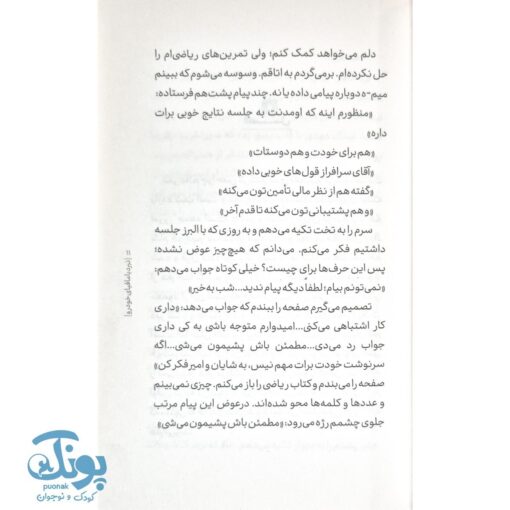 دلم می‌خواهد کمک کنم؛ ولی تمرین‌های ریاضی‌ام را
حل نکرده‌ام. برمی‌گردم به اتاقم. وسوسه می‌شوم که ببینم
میم-ه دوباره پیامی داده یا نه. چند پیام پشت هم فرستاده:
«منظورم اینه که اومدنت به جلسه نتایج خوبی برات
داره»
«هم برای خودت و هم دوستات»
«آقای سرافراز قول‌های خوبی داده»
«گفته هم از نظر مالی تأمین‌تون می‌کنه»
«و هم پشتیبانی‌تون می‌کنه تا قدم آخر»
سرم را به تخت تکیه می‌دهم و به روزی که با البرز جلسه
داشتیم فکر می‌کنم. می‌دانم که هیچ‌چیز عوض نشده؛
پس این حرف‌ها برای چیست؟ خیلی کوتاه جواب می‌دهم:
«نمی‌تونم بیام؛ لطفاً دیگه پیام ندید...شب به خیر»
تصمیم می‌گیرم صفحه را ببندم که جواب می‌دهد: «داری
کار اشتباهی می‌کنی...امیدوارم متوجه باشی به کی داری
جواب رد می‌دی...مطمئن باش پشیمون می‌شی...اگه
سرنوشت خودت برات مهم نیس، به شایان و امیر فکر کن»
صفحه را می‌بندم و کتاب ریاضی را باز می‌کنم. چیزی نمی‌بینم
و عددها و کلمه‌ها محو شده‌اند. درعوض این پیام مرتب
جلوی چشمم رژه می‌رود: «مطمئن باش پشیمون می‌شی»
نبرد با مافیای خودرو
پونک
puonak
کودک و نوجوان